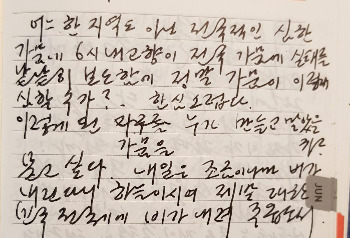 어느 한 지역도 아닌 전국적인 심한
가뭄에 6시내고향이 전국 가뭄에 실태를
낱낱히 보도한에 정말 가뭄이 이렇게
심할 수가?.. 한심스럽다.
이렇게 된 하루를 누가 만들고 말았을
가뭄을 까?
묻고 싶다. 내일은 조금이나마 비가
내린다니 하늘이시여 제발 대한
민국 전국에 비가 내려 주옵소서
JUN